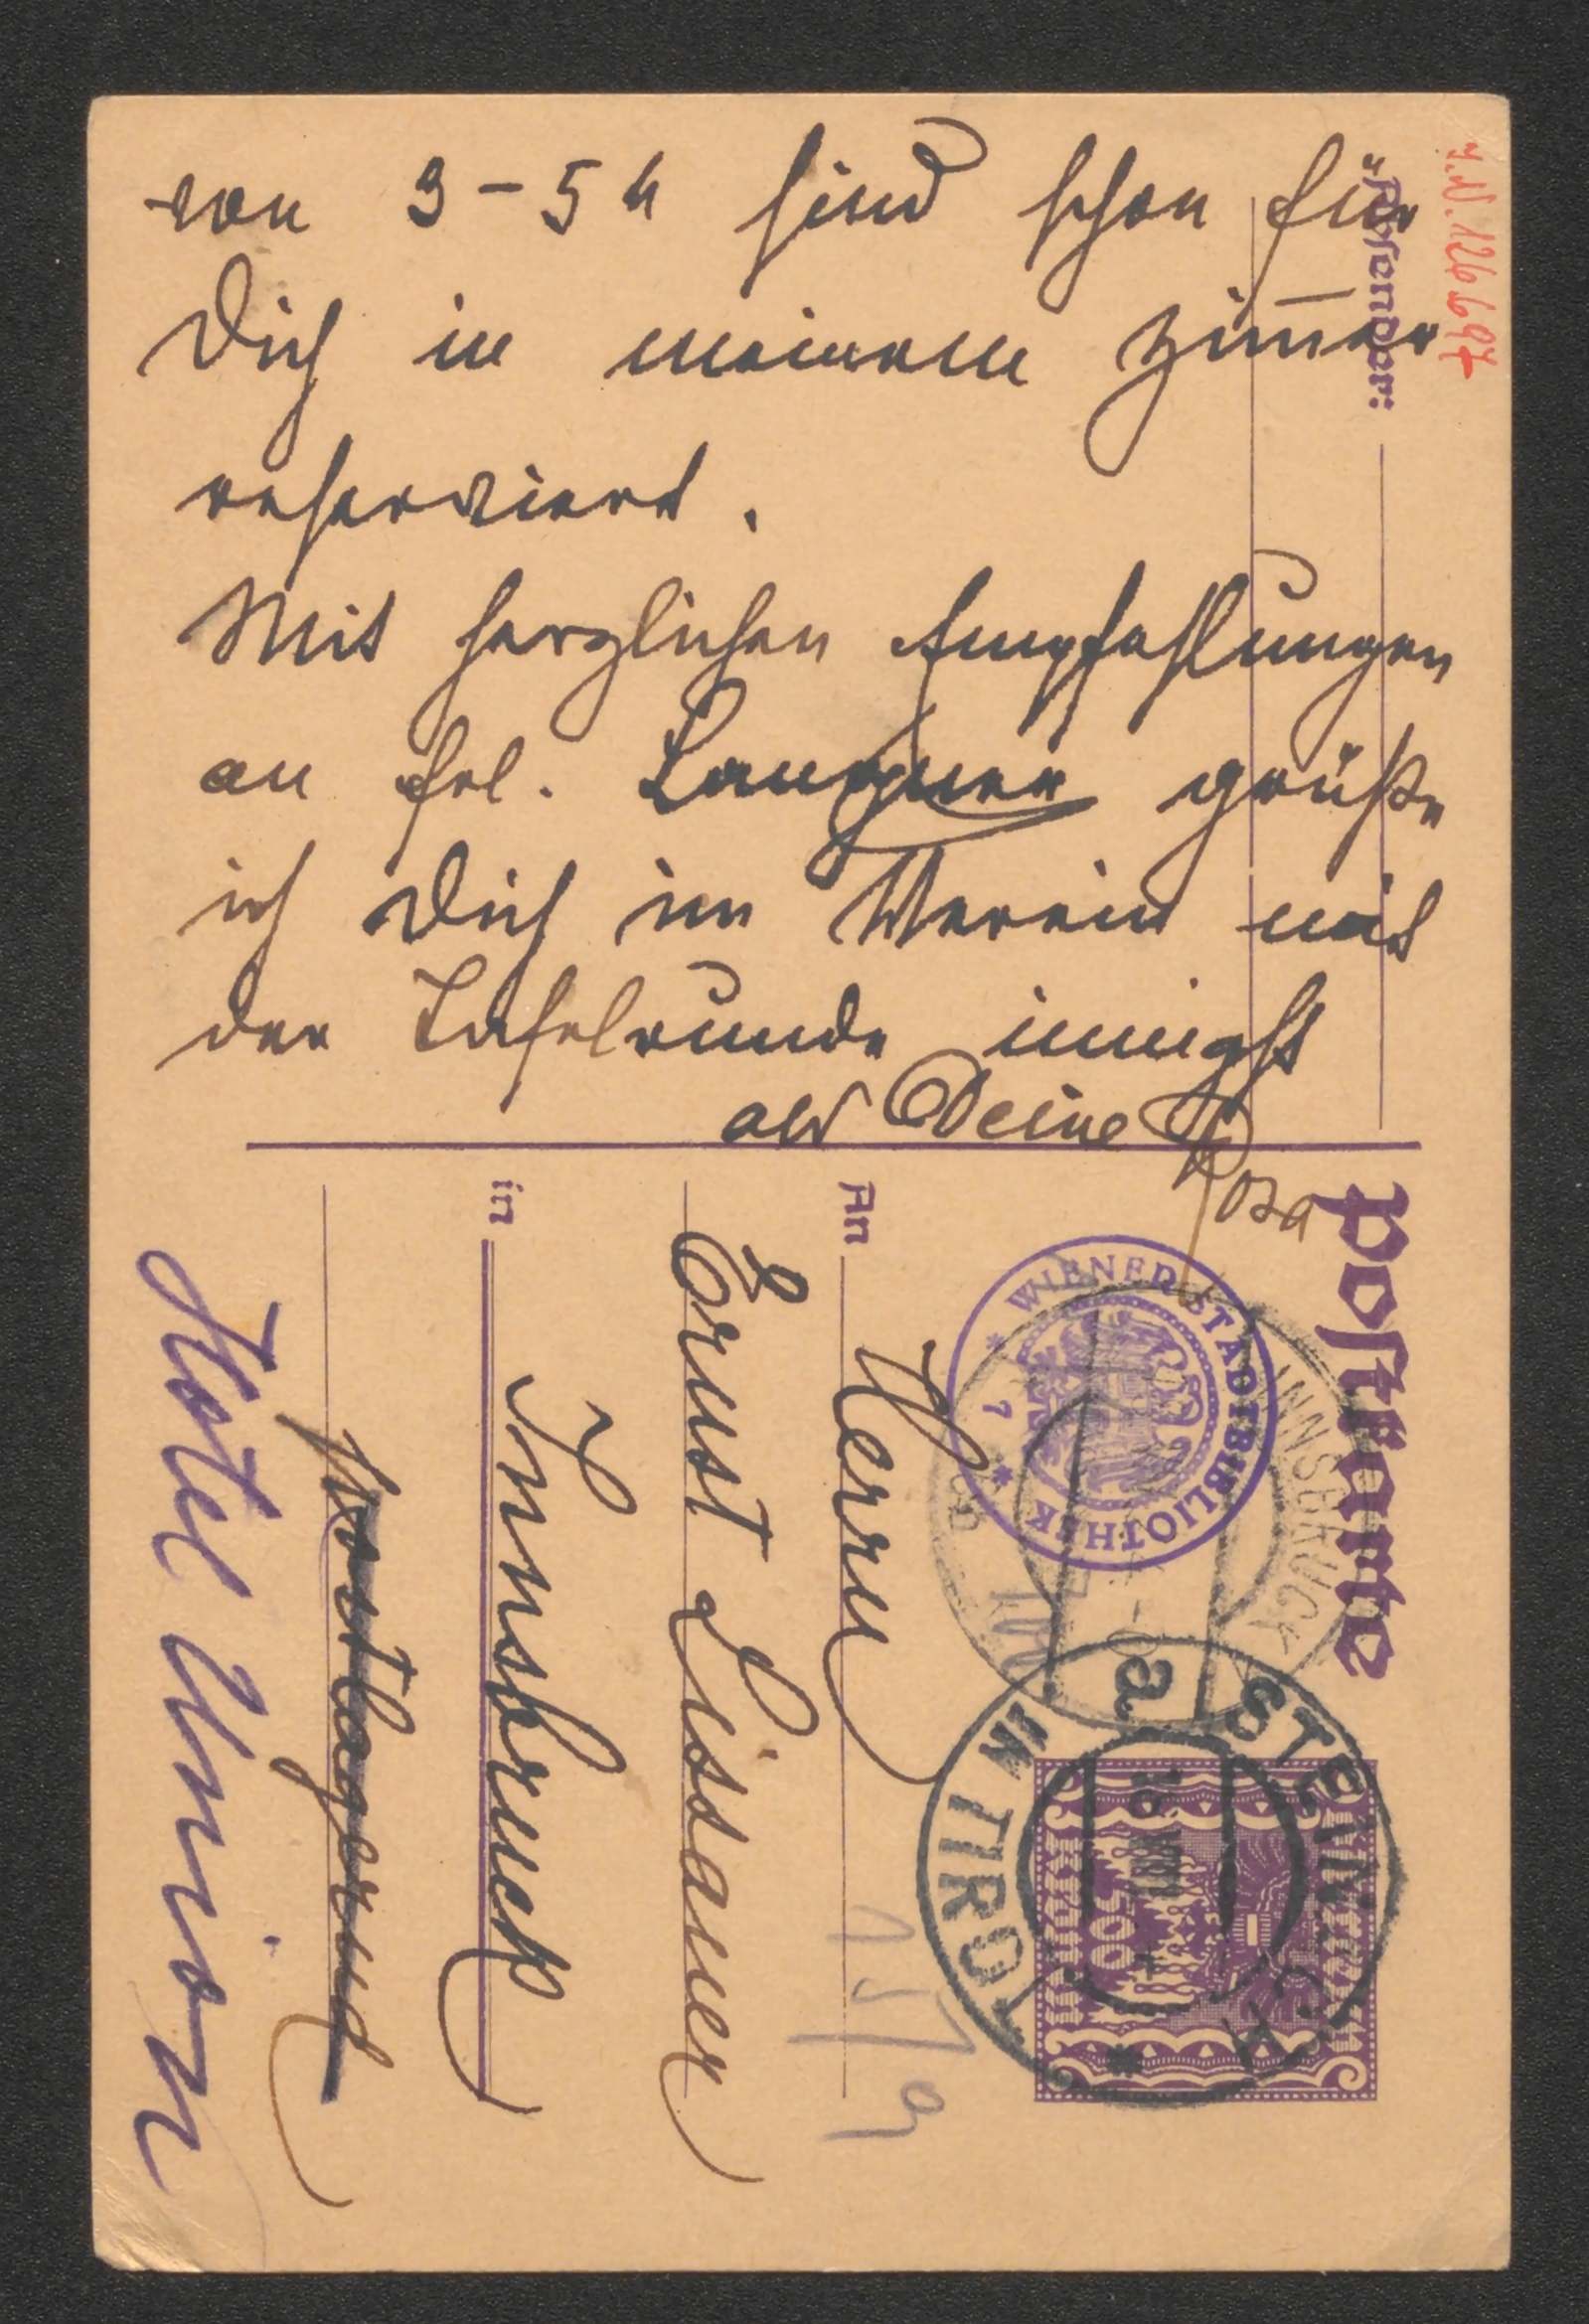 von 3-5 h sind schon für
Dich in meinem Zim̄er
reserviert.
Mit herzlichen Empfehlungen
an Frl. Langner grüße
ich Dich im Verein mit
der Tafelrunde innigst
als Deine Rosa
Absender:
J.N. 126697
Postkarte
WIENER STADTBIBLIOTHEK
* 7 *
INNSBRUCK
STEINACH
IN TIROL
a
500
An
Herrn
Ernst Lissauer
in
Innsbruck
postlagernd
Hotel Union